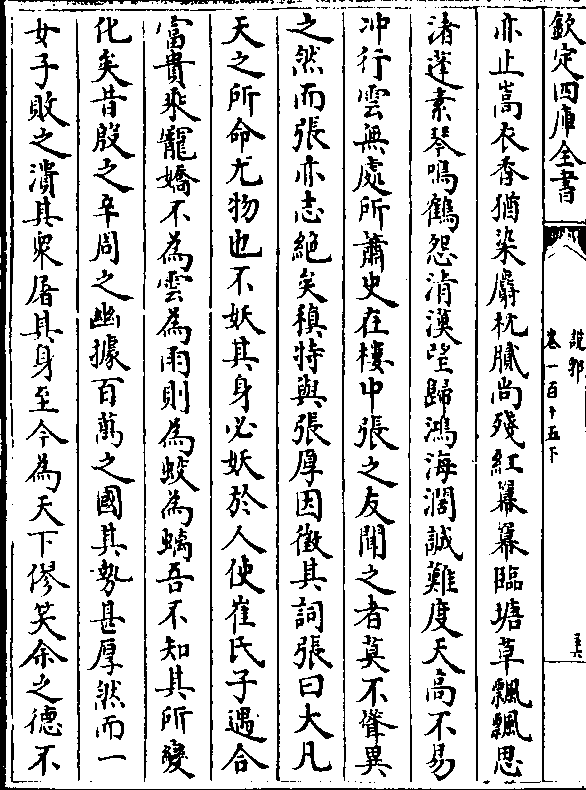 欽定四庫全書
說郛
卷一百十五下
亦止嵩衣香猶染麝枕膩尚殘紅羃羃臨塘草飄飄思
渚蓬素琴鳴鶴怨清漢望歸鴻海濶誠難度天高不易
冲行雲無處所蕭史在樓中張之友聞之者莫不聳異
之然而張亦志絶矣稹特與張厚因徵其詞張曰大凡
天之所命尤物也不妖其身必妖於人使崔氏子遇合
富貴乘寵嬌不為雲為雨則為蛟為螭吾不知其所變
化矣昔殷之辛周之幽據百萬之國其勢甚厚然而一
女子敗之潰其衆屠其身至今為天下僇笑余之德不